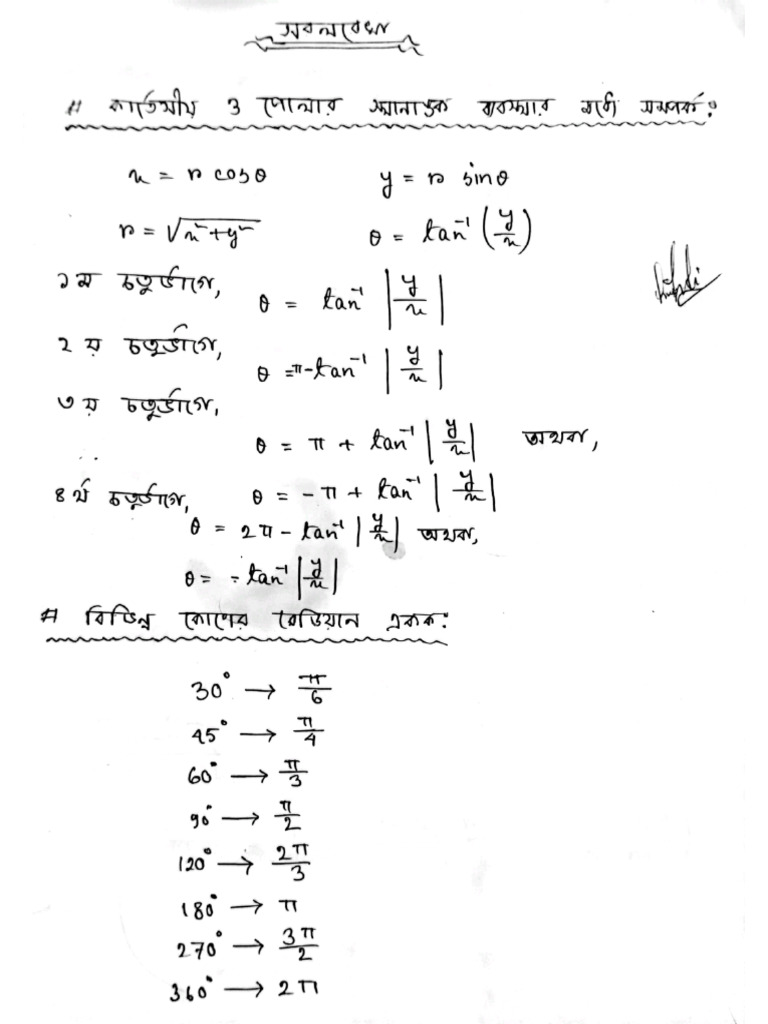 সরলরেখা
# কার্তেসীয় ও পোলার স্থানাঙ্ক ব্যবস্থার মধ্যে সম্পর্ক:
x = r cosθ y = r sinθ
r = √x²+y² θ = tan⁻¹ (y/x)
১ম চতুর্ভাগে, θ = tan⁻¹ |y/x|
২য় চতুর্ভাগে, θ = π-tan⁻¹ |y/x|
৩য় চতুর্ভাগে,
θ = π + tan⁻¹ |y/x| অথবা,
θ = -π + tan⁻¹ |y/x|
৪র্থ চতুর্ভাগে,
θ = 2π - tan⁻¹ |y/x| অথবা,
θ = -tan⁻¹ |y/x|
# বিভিন্ন কোণের রেডিয়ান একক:
30° → π/6
45° → π/4
60° → π/3
90° → π/2
120° → 2π/3
180° → π
270° → 3π/2
360° → 2π